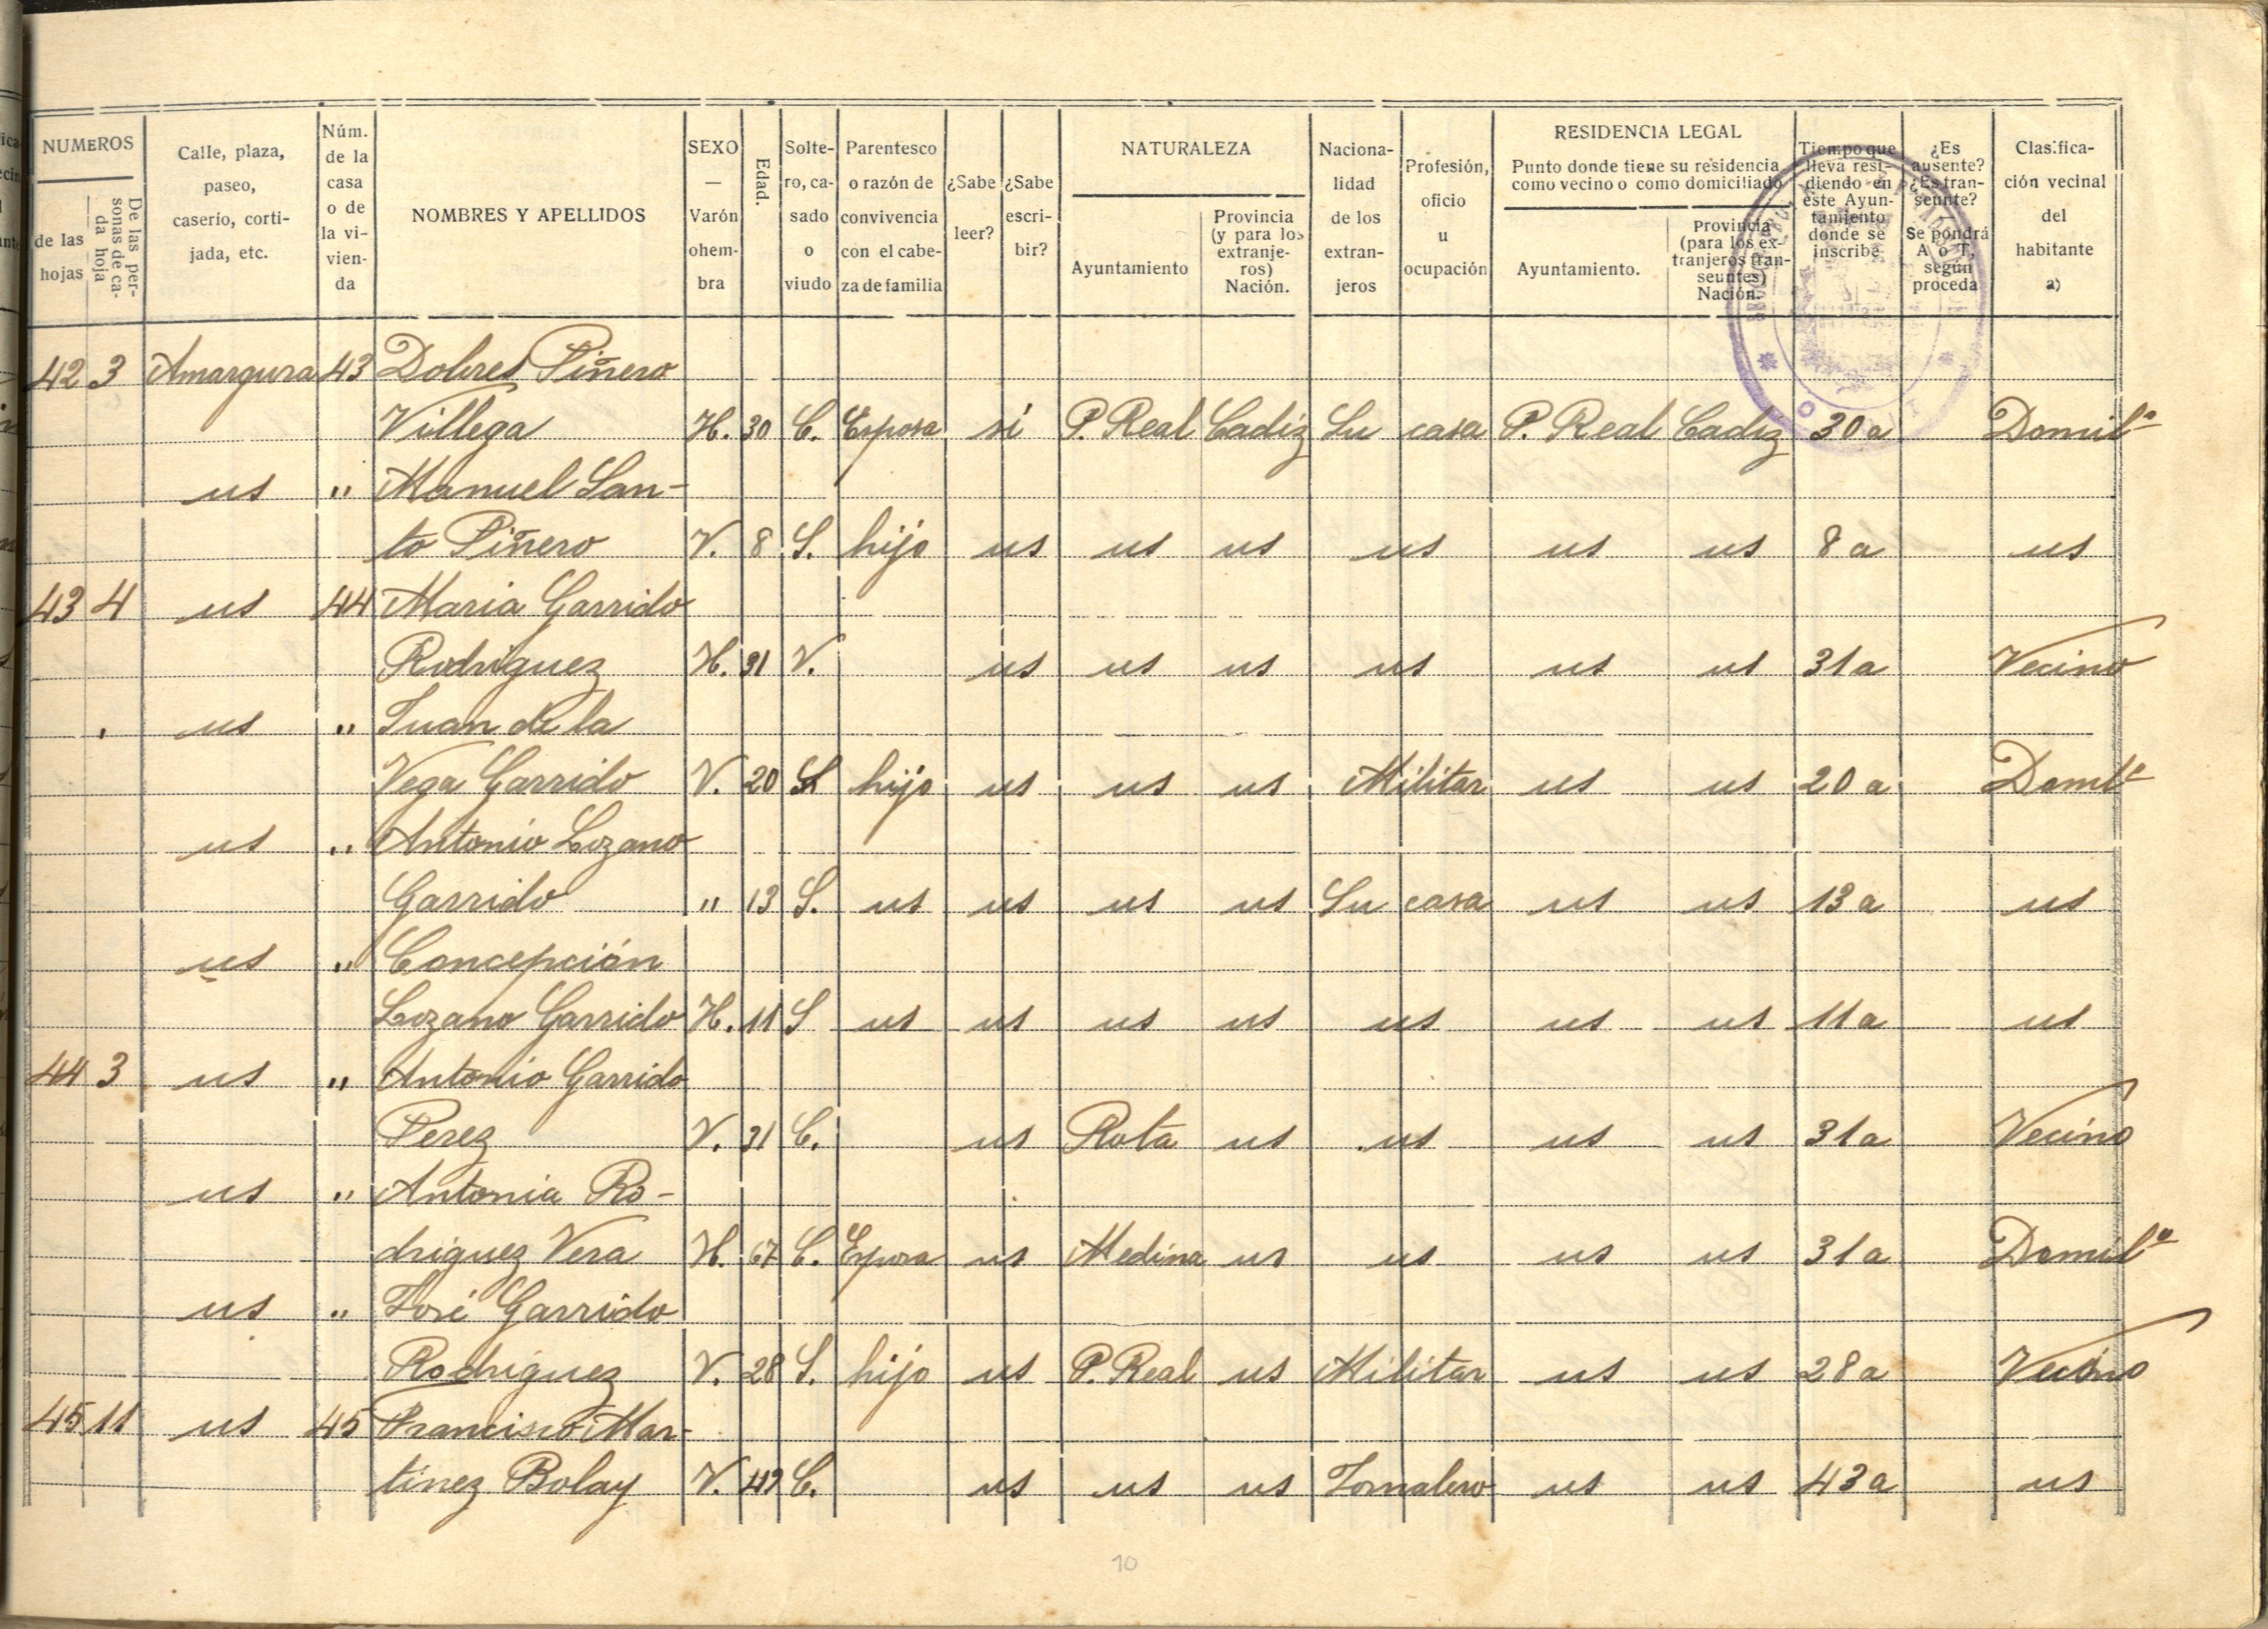 NUMEROS
de las hojas
De las personas de cada hoja
Calle, plaza, paseo, caserío, cortijada, etc.
Núm. de la casa o de la vivienda
NOMBRES Y APELLIDOS
SEXO — Varón o hembra
Edad.
Soltero, casado o viudo
Parentesco o razón de convivencia con el cabeza de familia
¿Sabe leer?
¿Sabe escribir?
NATURALEZA
Ayuntamiento
Provincia (y para los extranjeros) Nación.
Nacionalidad de los extranjeros
Profesión, oficio u ocupación
RESIDENCIA LEGAL
Punto donde tiene su residencia como vecino o como domiciliado
Ayuntamiento.
Provincia (para los extranjeros transeuntes) Nación.
Tiempo que lleva residiendo en este Ayuntamiento donde se inscribe
¿Es ausente? ¿Es transeunte? Se pondrá A o T, según proceda
Clasificación vecinal del habitante a)
42 3 Amargura 43 Dolores Piñero
Villega H. 30 C. Esposa si P. Real Cadiz Su casa P. Real Cadiz 30 a Domilº
us " Manuel San-
to Piñero V. 8 S. hijo us us us us us us 8 a us
43 4 us 44 Maria Garrido
Rodriguez H. 31 V. us us us us us us 31 a Vecino
us " Juan de la
Vega Garrido V. 20 S hijo us us us Militar us us 20 a Domilº
us " Antonio Lozano
Garrido " 13 S. us us us us Su casa us us 13 a us
us " Concepción
Lozano Garrido H. 11 S us us us us us us us 11 a us
44 3 us " Antonio Garrido
Perez V. 31 C. us Rota us us us us 31 a Vecino
us " Antonia Ro-
driguez Vera H. 67 C. Esposa us Medina us us us us 31 a Domilº
us " José Garrido
Rodriguez V. 28 S. hijo us P. Real us Militar us us 28 a Vecino
45 11 us 45 Francisco Mar-
tinez Bolay V. 43 C. us us us Jornalero us us 43 a us
10